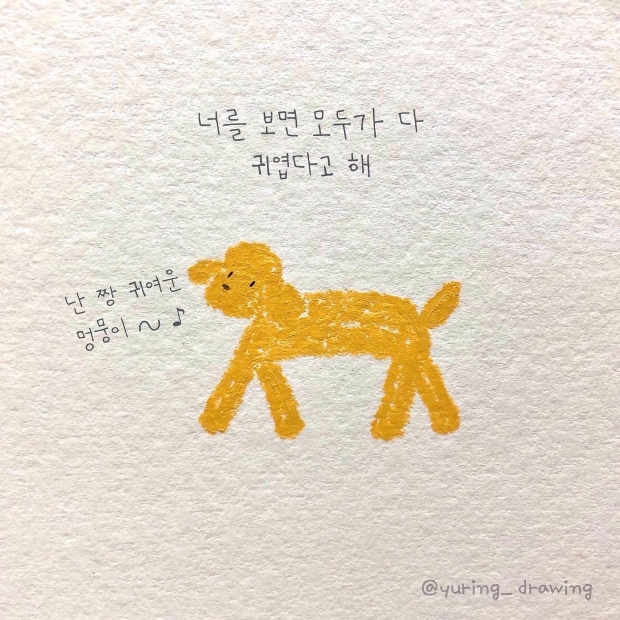 너를 보면 모두가 다
귀엽다고 해
난 짱 귀여운
멍뭉이 ~ ♪
@yuring_drawing